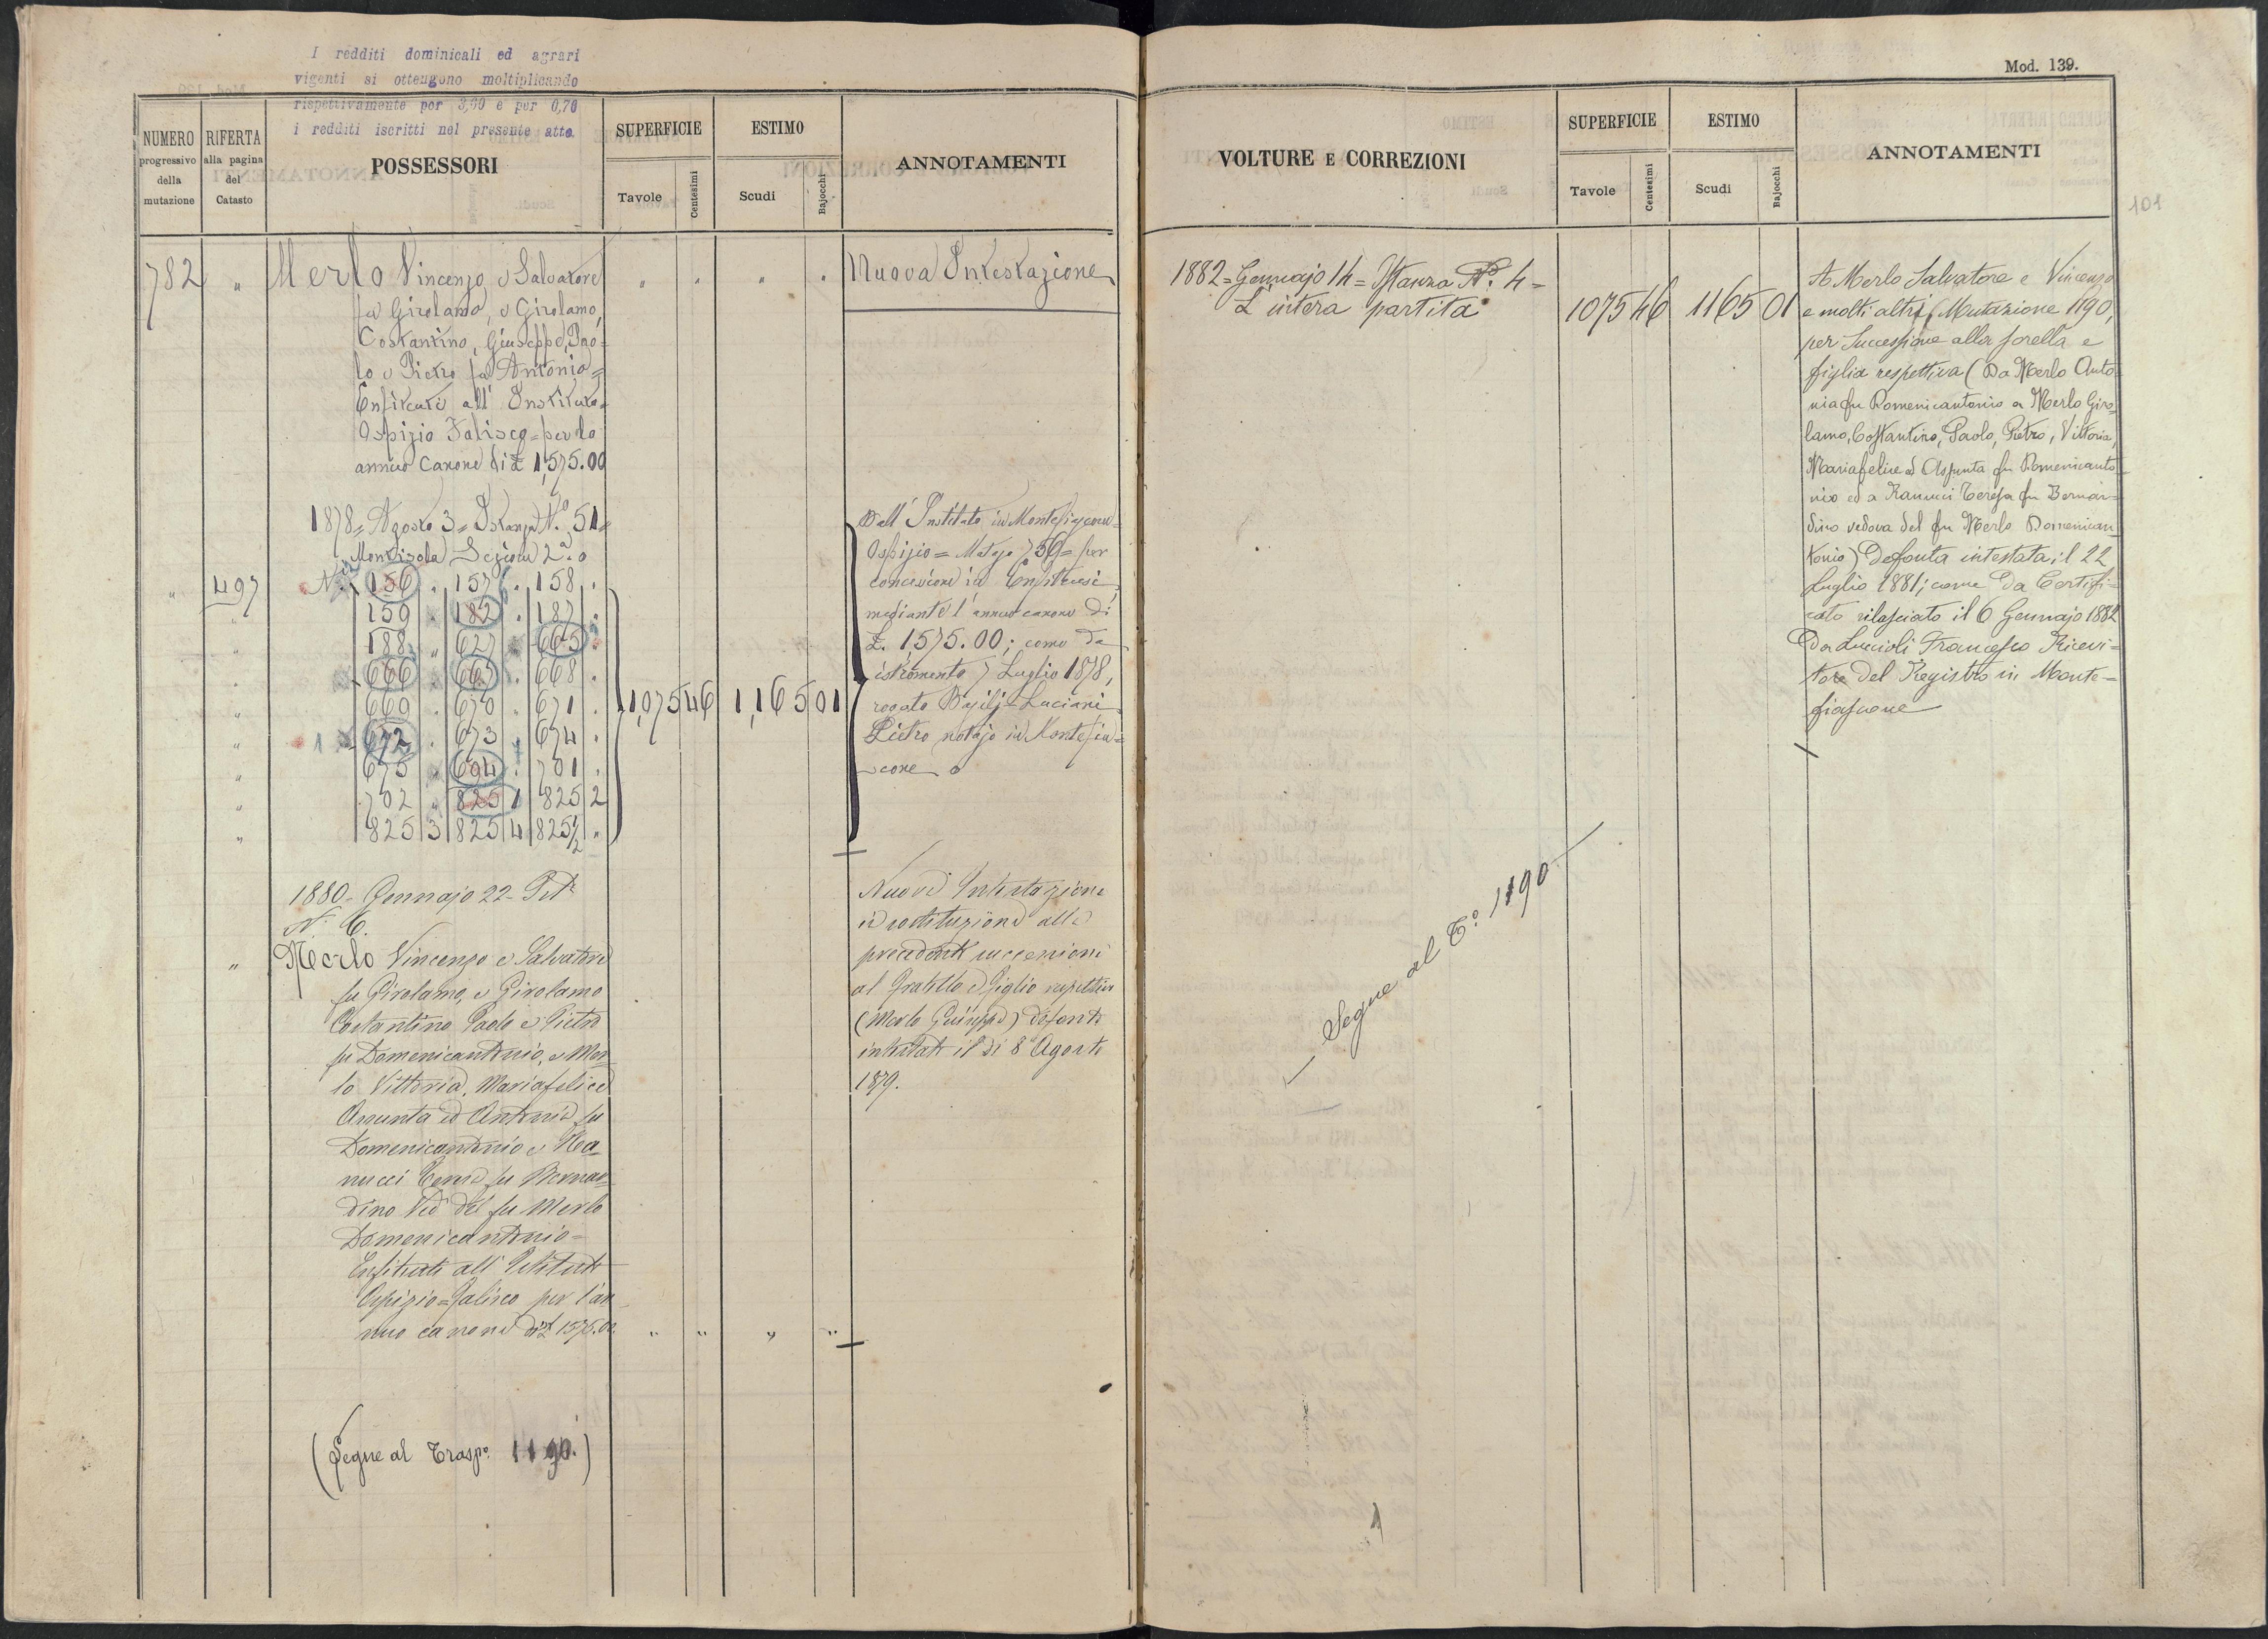 I redditi dominicali ed agrari
vigenti si ottengono moltiplicando
rispettivamente per 3,00 e per 0,70
i redditi iscritti nel presente atto.
NUMERO
progressivo
della
mutazione
RIFERTA
alla pagina
del
Catasto
POSSESSORI
SUPERFICIE
Tavole
Centesimi
ESTIMO
Scudi
Bajocchi
ANNOTAMENTI
782 " Merlo Vincenzo e Salvatore " " " "
fu Girolamo, e Girolamo,
Costantino, Giuseppe, Pao=
lo e Pietro fu Antonio=
Enfiteuti all' Instituto=
Ospizio Falisco=per lo
annuo Canone di £ 1,575.00
Nuova Intestazione
1878= Agosto 3= Istanza N.º 51=
Montisola Sezione 2ª.
" 497 N.i 156 . 157 . 158 .
" 159 " 182 . 187 .
" 188 " 627 " 665 .
" 666 " 667 . 668 .
" 669 . 670 . 671 .
" 1 672 . 673 . 674 .
" 675 " 694 . 701 .
" 702 " 825 1 825 2
" 825 3 825 4 825 1/2 "
1,075 46 1,165 01
Dall' Instituto in Montefiascon=
Ospizio= Mutaz.e 736= per
concessione in Enfiteusi
mediante l'annuo canone di
£. 1,575.00; come da
istromento 7 Luglio 1878,
rogato Basilj-Luciani
Pietro notajo in Montefia=
scone
1880- Gennajo 22- Pet.e
N.º 6.
" Merlo Vincenzo e Salvatore
fu Girolamo, e Girolamo
Costantino Paolo e Pietro
fu Domenicantonio, e Mer=
lo Vittoria, Mariafelice
Assunta ed Antonia fu
Domenicantonio e Ra=
nucci Teresa fu Bernar=
dino Ved.a del fu Merlo
Domenicantonio=
Enfiteuti all' Istituto
Ospizio=Falisco per l'an=
nuo canone di £ 1575.00. " " " "
Nuova Intestazione
in sostituzione alla
precedente successione
al fratello e figlio respettivo
(Merlo Giuseppe) defonto
intestato il dì 8 Agosto
1879.
(Segue al Trasp.º 1190.)
Mod. 139.
101
VOLTURE E CORREZIONI
SUPERFICIE
Tavole
Centesimi
ESTIMO
Scudi
Bajocchi
ANNOTAMENTI
1882= Gennajo 14= Istanza N.º 4=
L' intera partita
1075 46 1165 01
A Merlo Salvatore e Vincenzo
e molti altri (Mutazione 1190,
per Successione alla sorella e
figlia respettiva (Da Merlo Anto=
nia fu Domenicantonio a Merlo Giro=
lamo, Costantino, Paolo, Pietro, Vittoria,
Mariafelice ed Assunta fu Domenicanto=
nio ed a Ranucci Teresa fu Bernar=
dino vedova del fu Merlo Domenican=
tonio) Defonta intestata il 22
Luglio 1881; come da Certifi=
cato rilasciato il 6 Gennajo 1882
da Luccioli Francesco Ricevi=
tore del Registro in Monte=
fiascone
Segue al T.º 1190
1